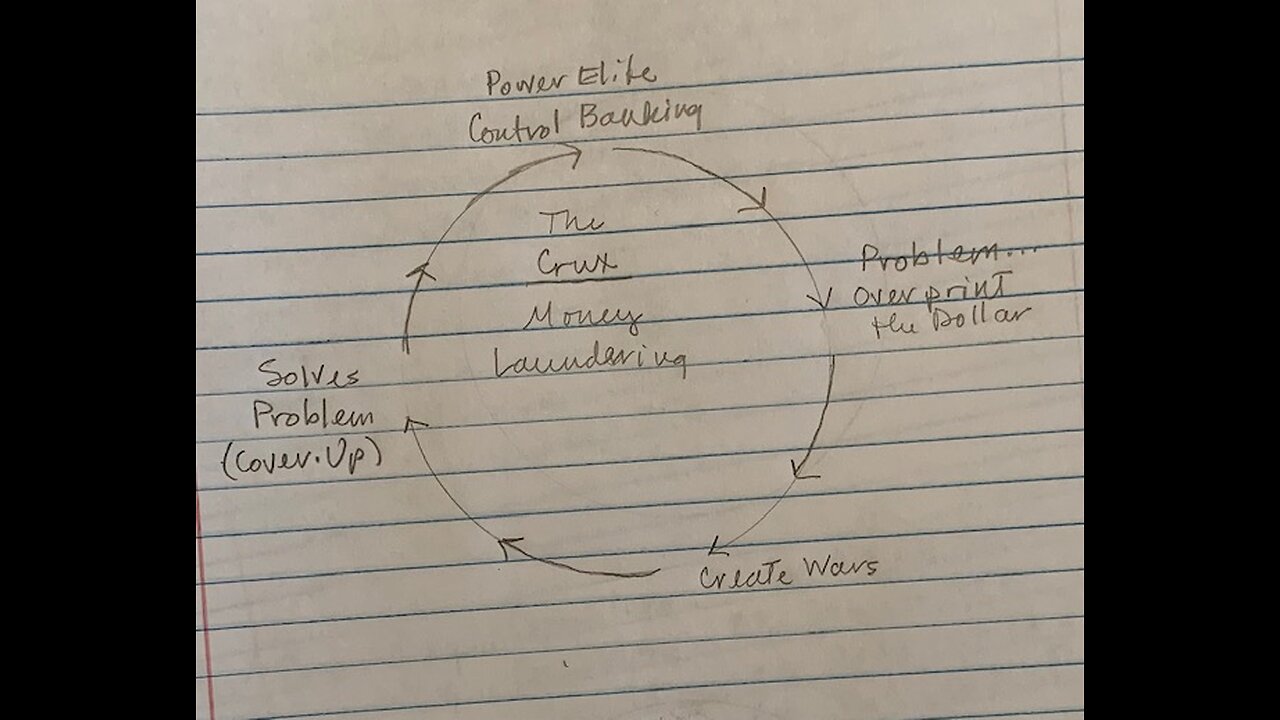 Power Elite
Control Banking
The
Crux
Money
Laundering
Problem...
Overprint
the Dollar
Create Wars
Solves
Problem
(Cover-Up)